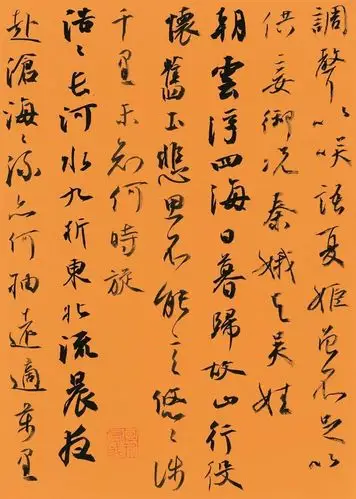 調聲以笑語夏姬曾不足以
供妾御況秦娥與吳娃
朝雲浮四海日暮歸故山行役
懷舊土悲思不能言悠〻涉
千里未知何時旋
浩〻長河水九折東北流晨夜
赴滄海〻流亦何抽遠適萬里